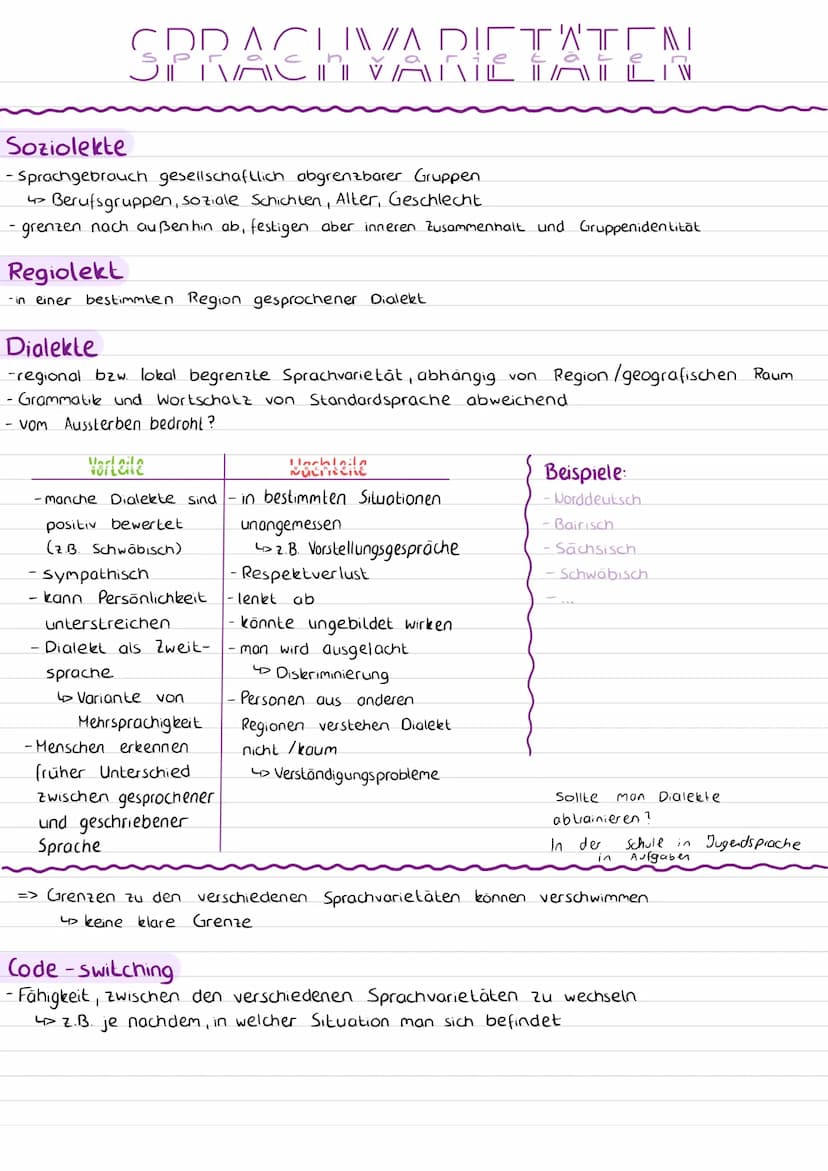 SPRACHVARIETÄTEN
Sprachvarietäten
Soziolekte
- Sprachgebrauch gesellschaftlich abgrenzbarer Gruppen
↳ Berufsgruppen, soziale Schichten, Alter, Geschlecht
- grenzen nach außenhin ab, festigen aber inneren Zusammenhalt und Gruppenidentität
Regiolekt
- in einer bestimmten Region gesprochener Dialekt
Dialekte
- regional bzw. lokal begrenzte Sprachvarietät, abhängig von Region/geografischen Raum
- Grammatik und Wortschatz von Standardsprache abweichend
- vom Aussterben bedroht?
Vorteile
- manche Dialekte sind
positiv bewertet
(z.B. Schwäbisch)
- sympathisch
- kann Persönlichkeit
unterstreichen
- Dialekt als Zweit-
sprache
↳ Variante von
Mehrsprachigkeit
- Menschen erkennen
früher Unterschied
zwischen gesprochener
und geschriebener
Sprache
Nachteile
- in bestimmten Situationen
unangemessen
↳ z.B. Vorstellungsgespräche
- Respektverlust
- lenkt ab
- könnte ungebildet wirken
- man wird ausgelacht
↳ Diskriminierung
- Personen aus anderen
Regionen verstehen Dialekt
nicht /kaum
↳ Verständigungsprobleme
Beispiele:
- Norddeutsch
- Bairisch
- Sächsisch
- Schwäbisch
- ...
Sollte man Dialekte
abtrainieren?
In der Schule in Jugendsprache
in Aufgaben
=> Grenzen zu den verschiedenen Sprachvarietäten können verschwimmen
↳ keine klare Grenze
Code-switching
- Fähigkeit, zwischen den verschiedenen Sprachvarietäten zu wechseln
↳ z.B. je nachdem, in welcher Situation man sich befindet